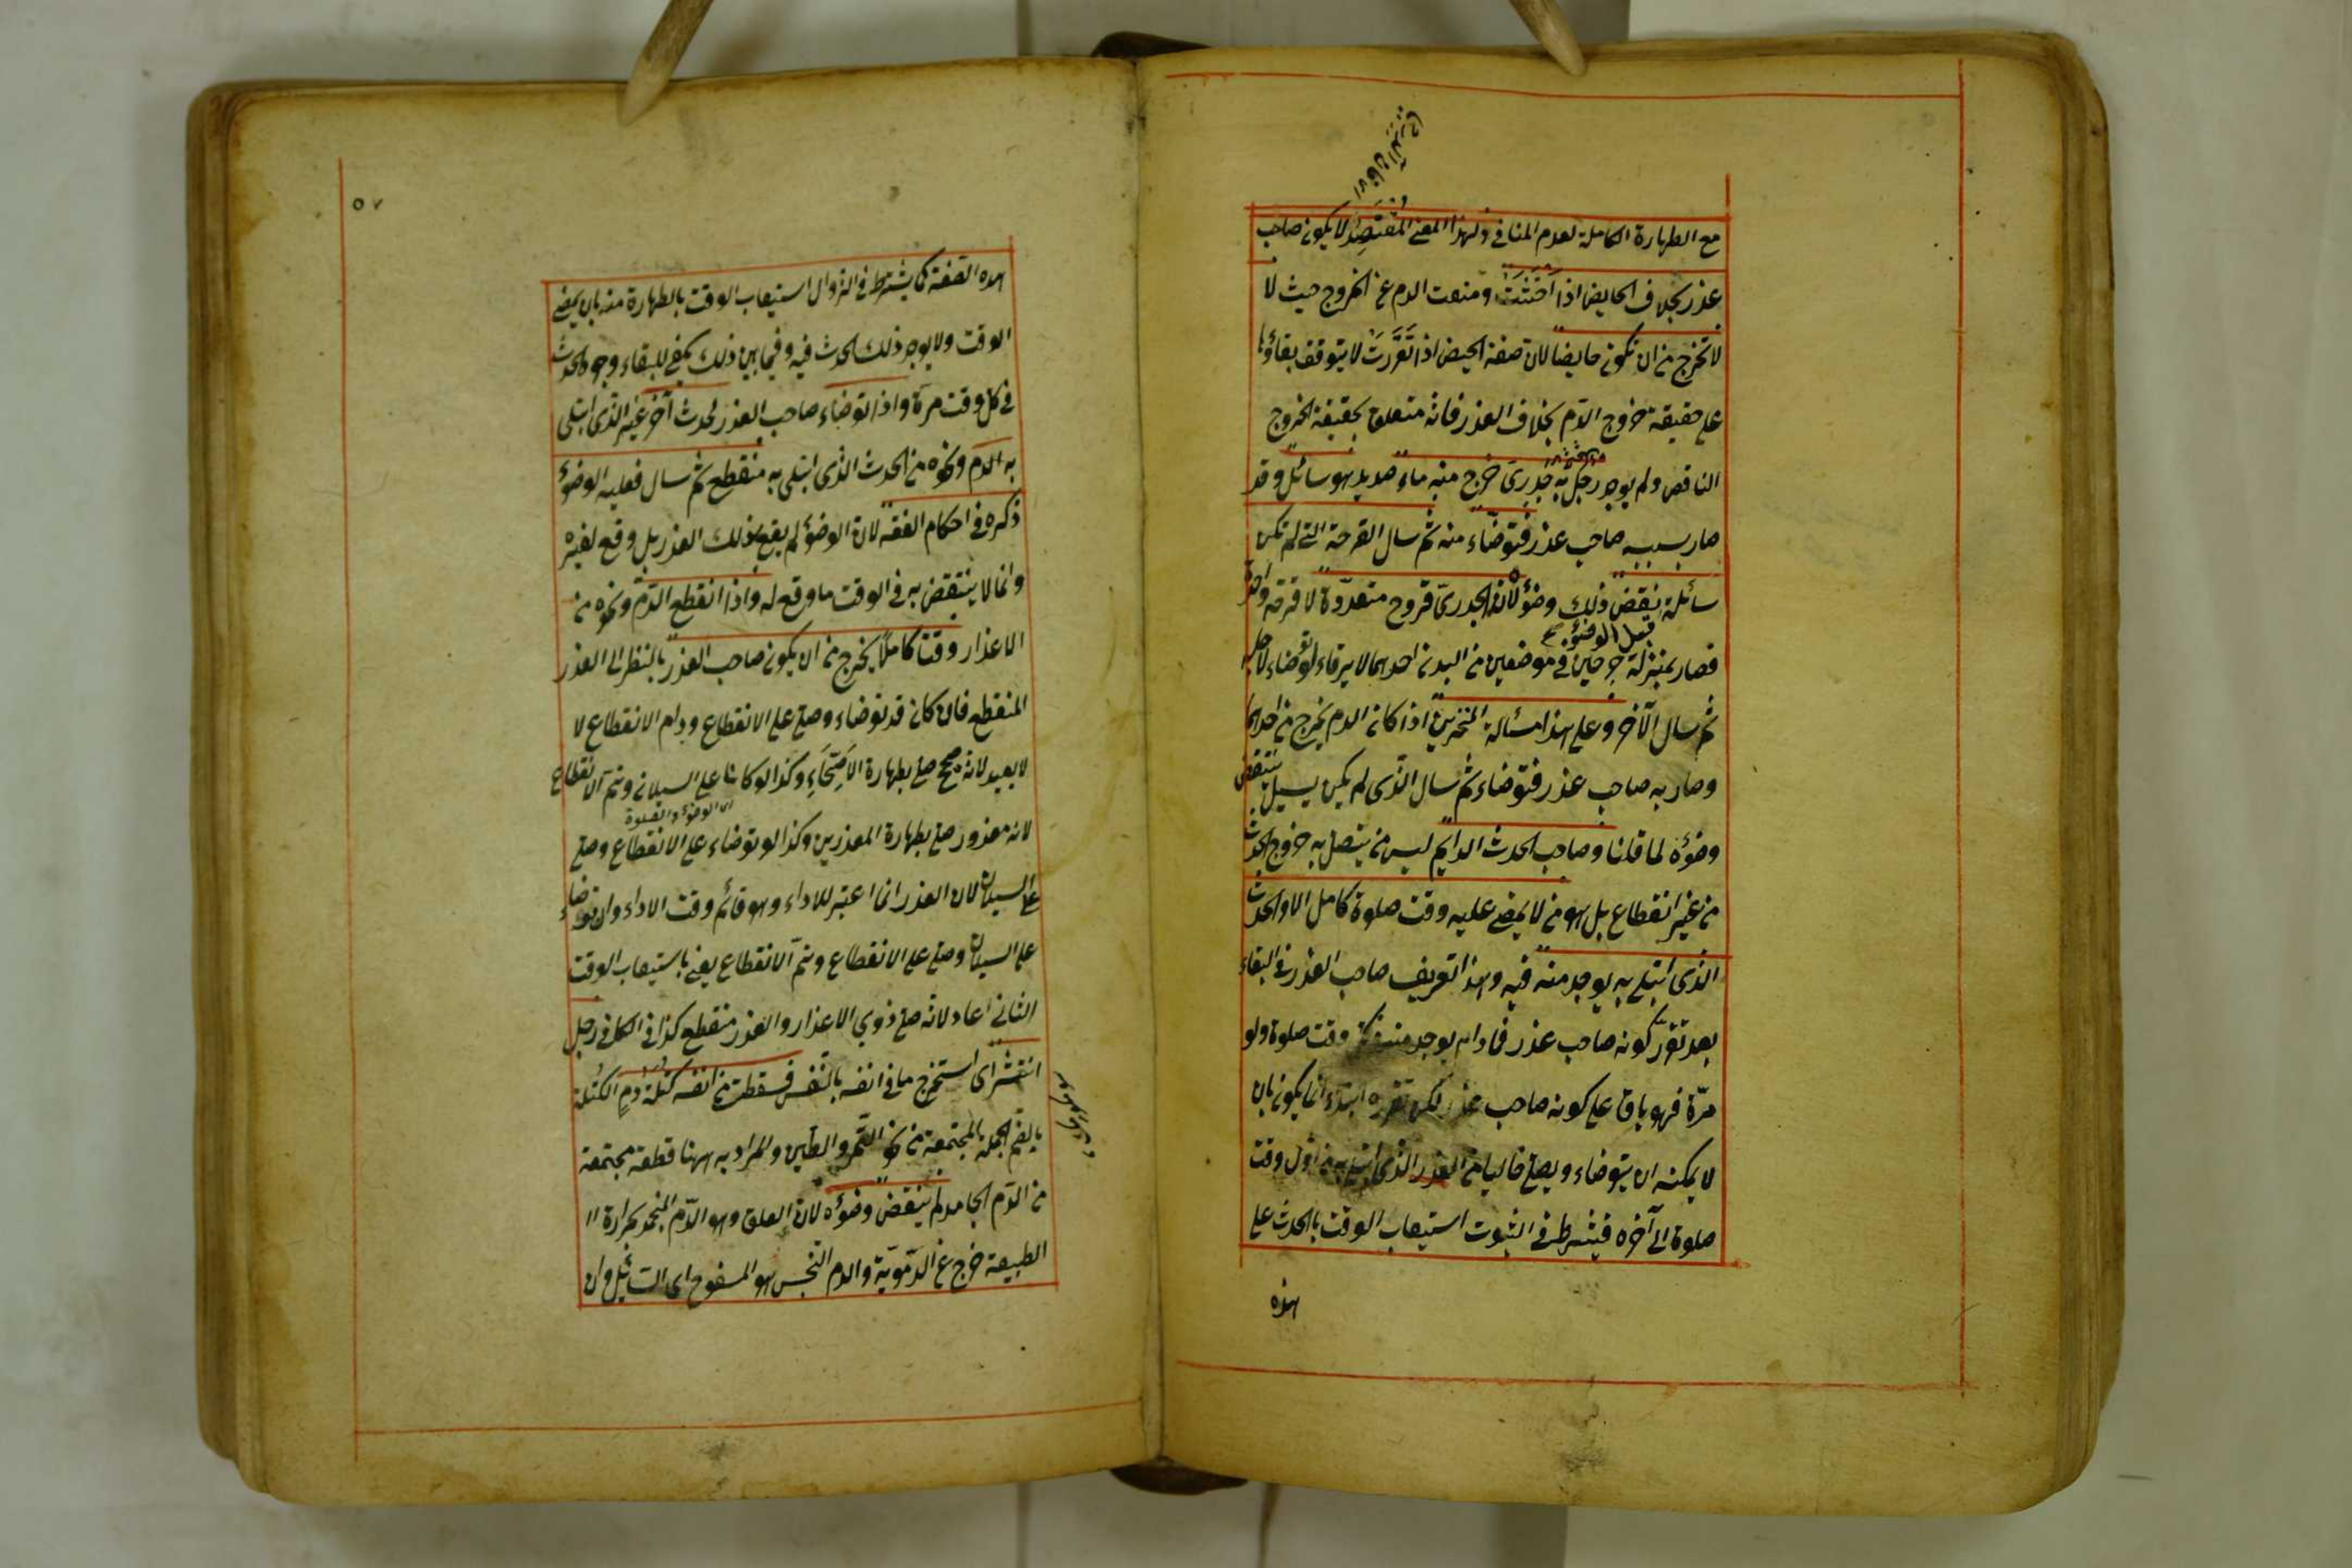 مع الطهارة الكاملة لعدم المنافي ولهذا المعنى المفتصد لا يكون صاحب
عذر بخلاف الحايض اذا احتشت ومنعت الدم عن الخروج حيث لا
لا تخرج من ان تكون حايضا لان صفة الحيض اذا تقررت لا يتوقف بقاؤها
على حقيقة خروج الدم بخلاف العذر فانه متعلق بحقيقة الخروج
الناقض ولم يوجد رجل به جدري خرج منه ماء صديد وهو سائل وقد
صار بسببه صاحب عذر فتوضاء منه ثم سال القرحة التي لم تكن
سائلة نقض ذلك وضؤه لان الجدري قروح متعددة لا قرحة واحدة
قبل الوضوء
فصار بمنزلة جرحين في موضعين من البدن احدهما لا يرقاء لو توضاء لاجله
ثم سال الآخر وعلى هذا مسئالة المنخرين اذا كان الدم يخرج من احدهما
وصار به صاحب عذر فتوضاء ثم سال الذى لم يكن يسيل ينتقض
وضؤه لما قلنا وصاحب الحدث الدايم ليس من يتصل به خروج الحدث
من غير انقطاع بل هو من لا يمضى عليه وقت صلوة كامل الا والحدث
الذى ابتلى به يوجد منه فيه وهذا تعريف صاحب العذر في البقاء
بعد تقرر كونه صاحب عذر فما دام يوجد منه في كل وقت صلوة ولو
مرة فهو باق على كونه صاحب عذر لكن تقرره ابتداء انما يكون بان
لا يمكنه ان يتوضاء ويصلى خاليا من العذر الذى ابتلى به من اول وقت
صلوة الى آخره فيشرط في الثبوت استيعاب الوقت بالحدث على
هذه
٥٧
هذه الصفة كما يشترط في الزوال استيعاب الوقت بالطهارة منه بان يمضى
الوقت ولا يوجد ذلك الحدث فيه وفيما بين ذلك يكفى للبقاء وجود الحدث
في كل وقت مرة واذا توضاء صاحب العذر لحدث آخر غير الذى ابتلى
به الدم ونحوه من الحدث الذى ابتلى به منقطع ثم سال فعليه الوضؤ
ذكره في احكام الفقه لان الوضؤ لم يقع لذلك العذر بل وقع لغيره
وانما لا ينتقض به في الوقت ما وقع له واذا انقطع الدم ونحوه من
الاعذار وقتا كاملا يخرج من ان يكون صاحب العذر بالنظر الى العذر
المنقطع فان كان قد توضاء وصلى على الانقطاع ودام الانقطاع لا
لا يعيد لانه صحيح صلى بطهارة الاصحاء وكذا لو كانا على السيلان وتم الانقطاع
اى الوضؤ والصلوة
لانه معذور صلى بطهارة المعذرين وكذا لو توضاء على الانقطاع وصلى
على السيلان لان العذر انما اعتبر للاداء وهو قائم وقت الاداء وان توضاء
على السيلان وصلى على الانقطاع وتم الانقطاع يعنى باستيعاب الوقت
الثاني اعاد لانه صلى ذوي الاعذار والعذر منقطع كذا في الكافي رجل
انتثر اى استخرج ما في انفه بالنفس فسقطت من انفه كتلة دم الكتلة
بالضم الجملة المجتمعة من نحو التمر والطين والمراد به ههنا قطعة مجتمعة
من الدم الجامد لم ينقض وضؤه لان العلق وهو الدم المنجمد بحرارة
الطبيعة خرج عن الدموية والدم النجس هو المسفوح اى السائل وان